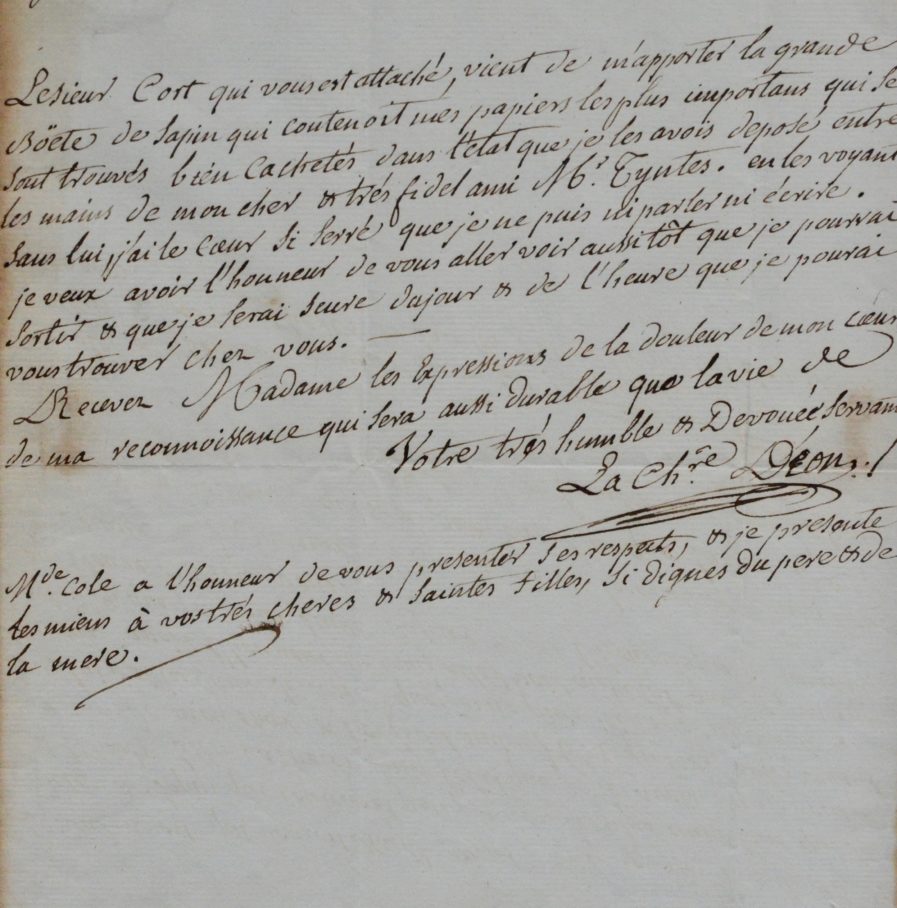 Le sieur Cort qui vous est attaché, vient de m'apporter la grande
Böete de Sapin qui contenoit mes papiers les plus importans qui se
sont trouvés bien Cachetés dans l'état que je les avois deposé entre
les mains de mon cher & trés fidel ami Mr. Tyntes. en les voyant
sans lui, j'ai le cœur si serré que je ne puis ni parler ni écrire.
je veux avoir l'honneur de vous aller voir aussi tôt que je pourrai
sortir & que je serai seure du jour & de l'heure que je pourai
vous trouver chez vous. —
Recevez Madame les Expressions de la douleur de mon cœur
de ma reconnoissance qui sera aussi durable que la vie de
Votre trés humble & Devouée servante
La Chre. Déon.
Mde. Cole a l'honneur de vous presenter ses respects, & je presente
les miens à vos trés cheres & Saintes Filles, si dignes du pere & de
la mere.